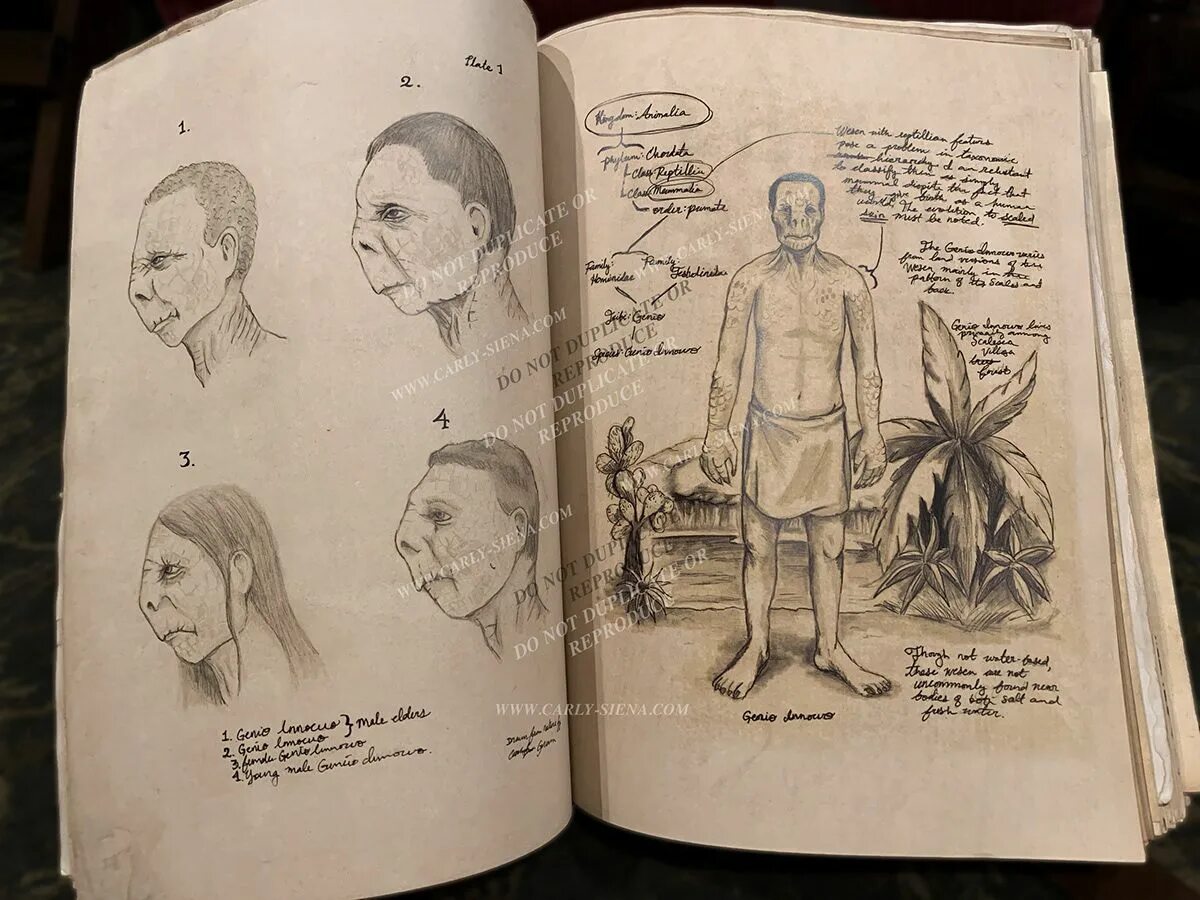 Plate 1
1.
2.
3.
4
1. Genio Innocuo } male elders
2. Genio Innocuo
3. Genio Innocuo
4. Young male Genio Innocuo.
Drawn from
Kingdom: Animalia
Phylum: Chordata
Class: Reptillia
Class: Mammalia
order: primate
Family: Family:
Hominidae Testudinidae
Genio
Species: Genio Innocuo
Wesen with reptillian features
pose a problem in taxonomic
hierarchy. I am reluctant
to classify them as simply
mammal despite the fact that
they give birth as a human
would. The evolution to scaled
skin must be noted.
The Genio Innocuo varies
from land versions of this
Wesen mainly in the
pattern of its scales and
back.
Genio Innocuo lives
primarily among
Scalesia
Villosa
trees
forest
Though not water-based,
these wesen are not
uncommonly found near
bodies of both salt and
fresh water.
Genio Innocuo
DO NOT DUPLICATE OR
REPRODUCE
WWW.CARLY-SIENA.COM
DO NOT DUPLICATE OR
REPRODUCE
DO NOT DUPLICATE OR
REPRODUCE
WWW.CARLY-SIENA.COM
DO NOT DUPLICATE OR
REPRODUCE
DO NOT DUPLICATE OR
REPRODUCE
WWW.CARLY-SIENA.COM